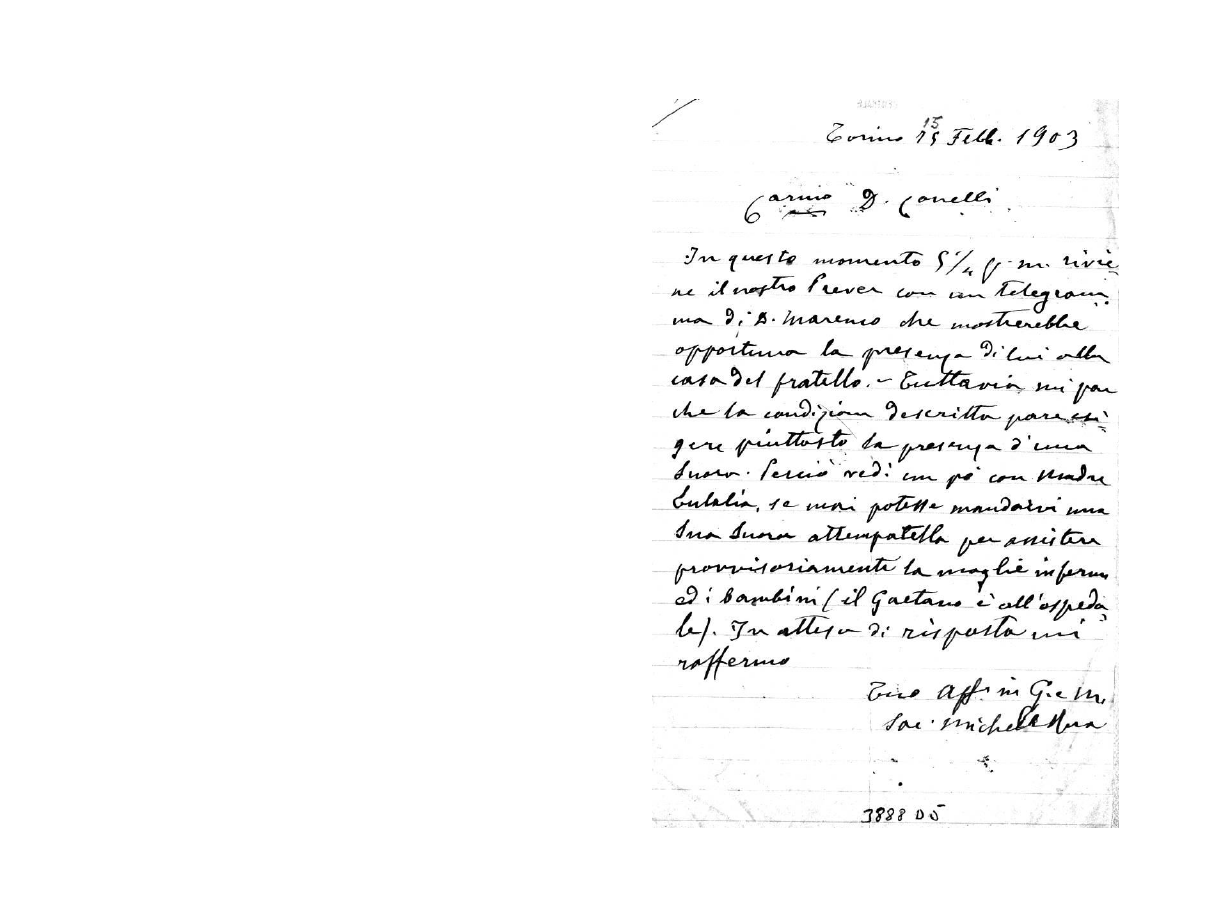 Torino 15 Febb. 1903
15
Carmo D. Conelli
In questo momento 5 1/4 p. m. rivie-
ne il nostro Prever con un telegram-
ma di D. Marenco che mostrerebbe
opportuna la presenza di lui alla
casa del fratello. - Tuttavia mi par
che la condizion descritta pare esi-
gere piuttosto la presenza d'una
Suora. Perciò vedi un pò con Madre
Eulalia, se mai potesse mandarvi una
Sua Suora attempatella per assistere
provvisoriamente la moglie inferma
ed i bambini (il Gaetano è all'ospeda-
le). In attesa di risposta mi
raffermo
Tuo aff. in G. e M.
Sac. Michele Rua
3888 D5